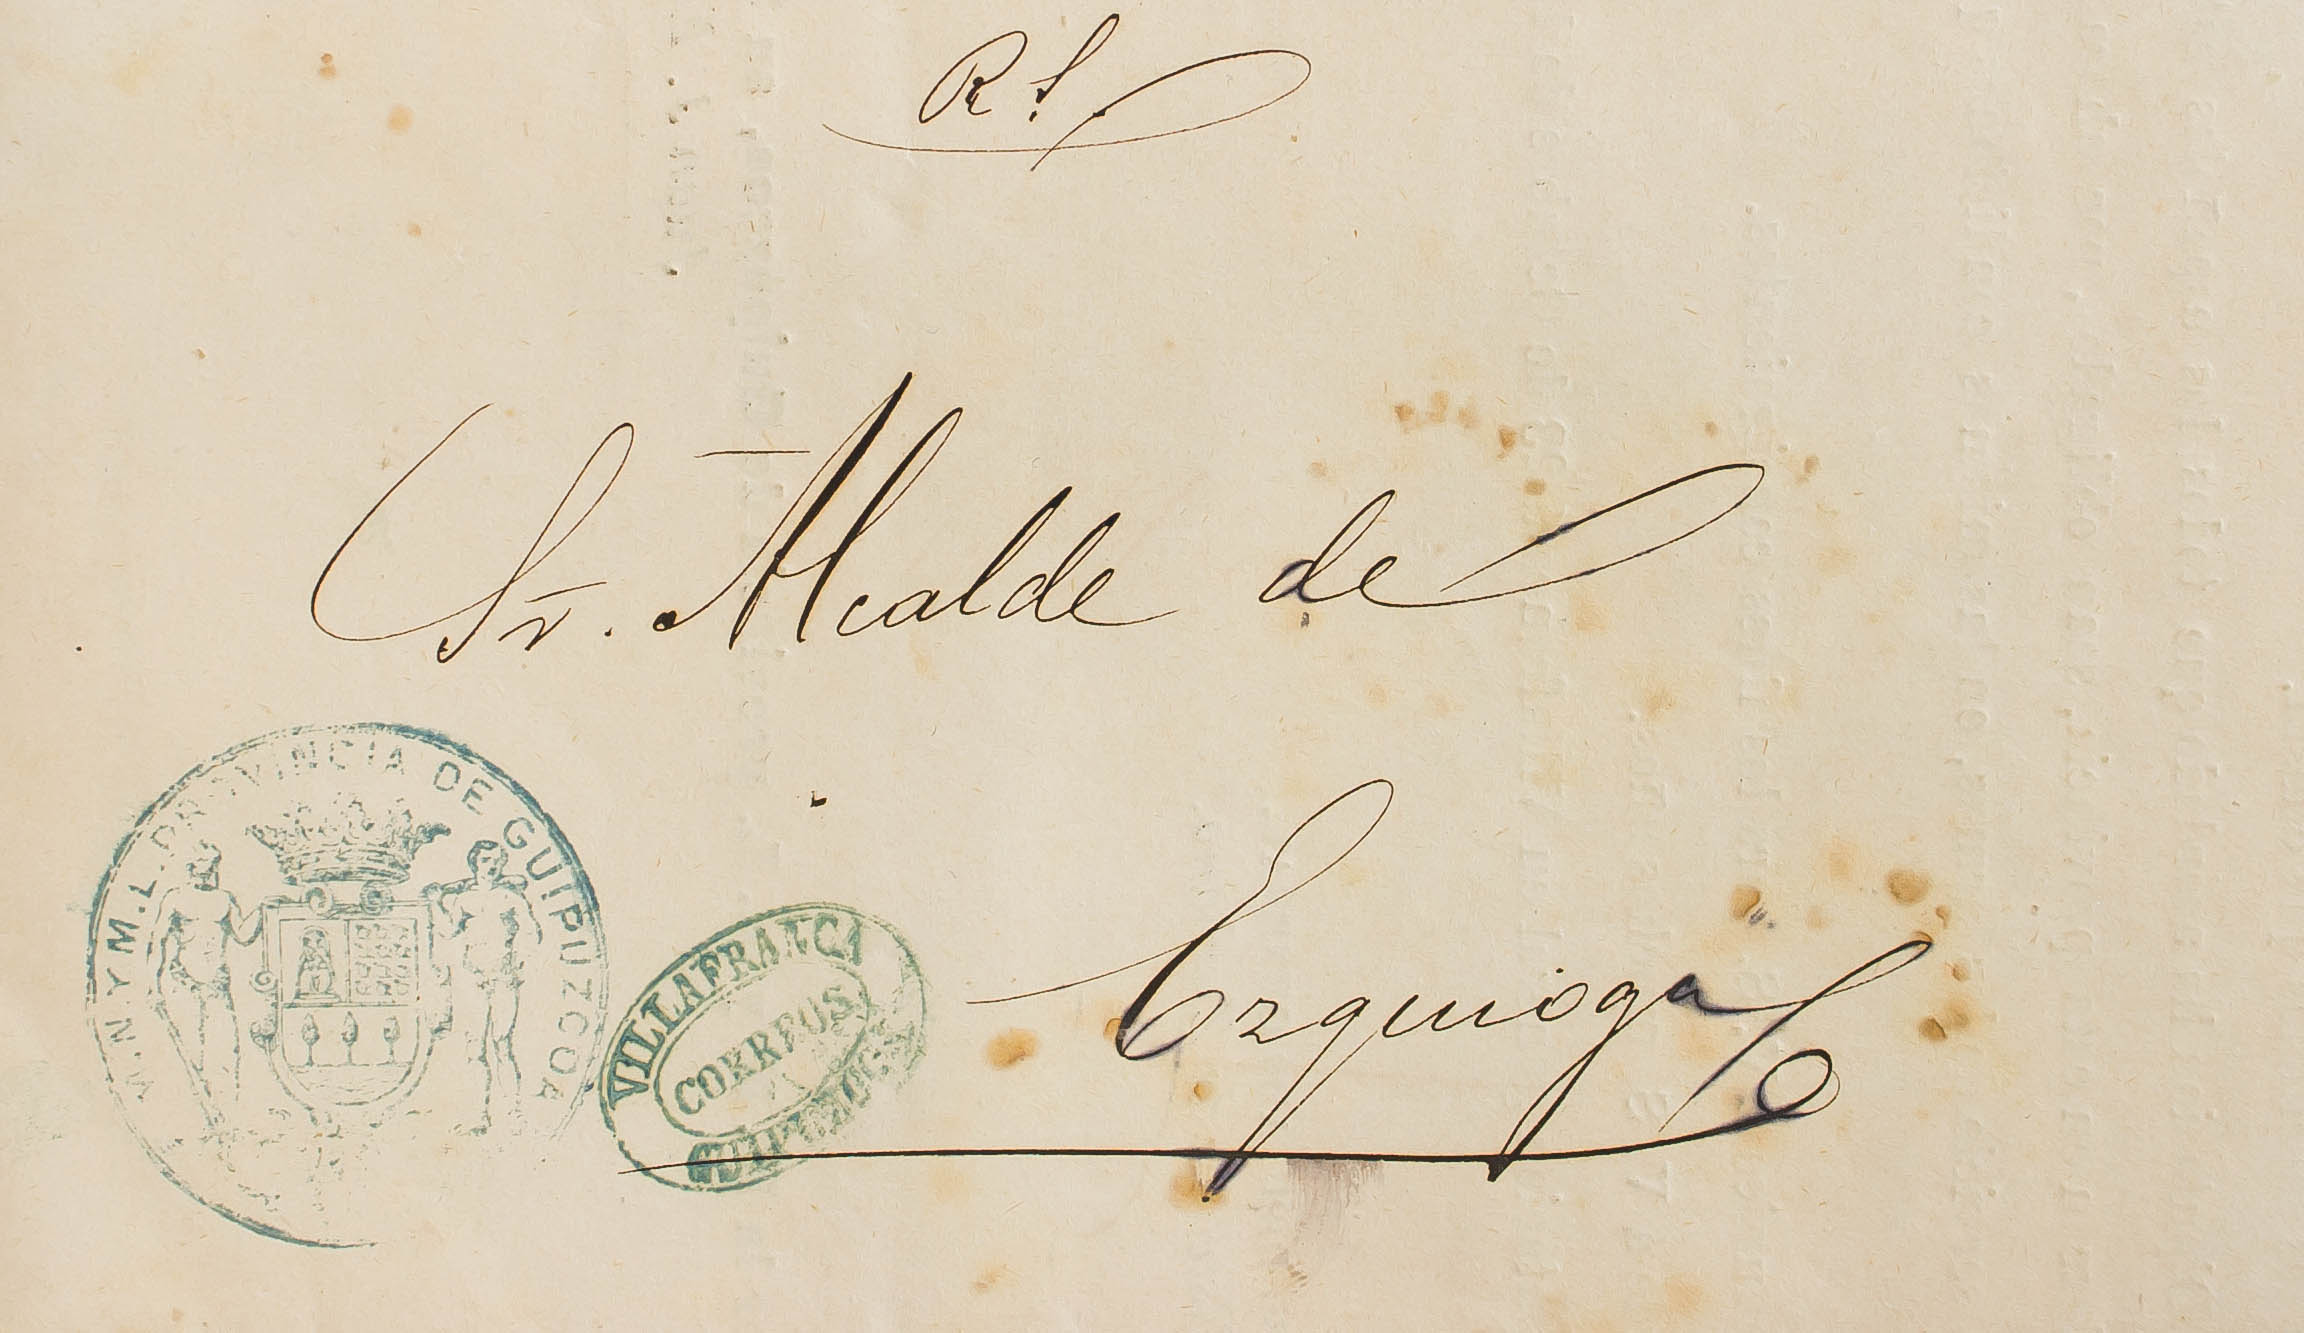 R S.
Sr. Alcalde de
Ezquioga
M.N.Y M.L. PROVINCIA DE GUIPUZCOA
VILLAFRANCA
CORREOS
GUIPUZCOA